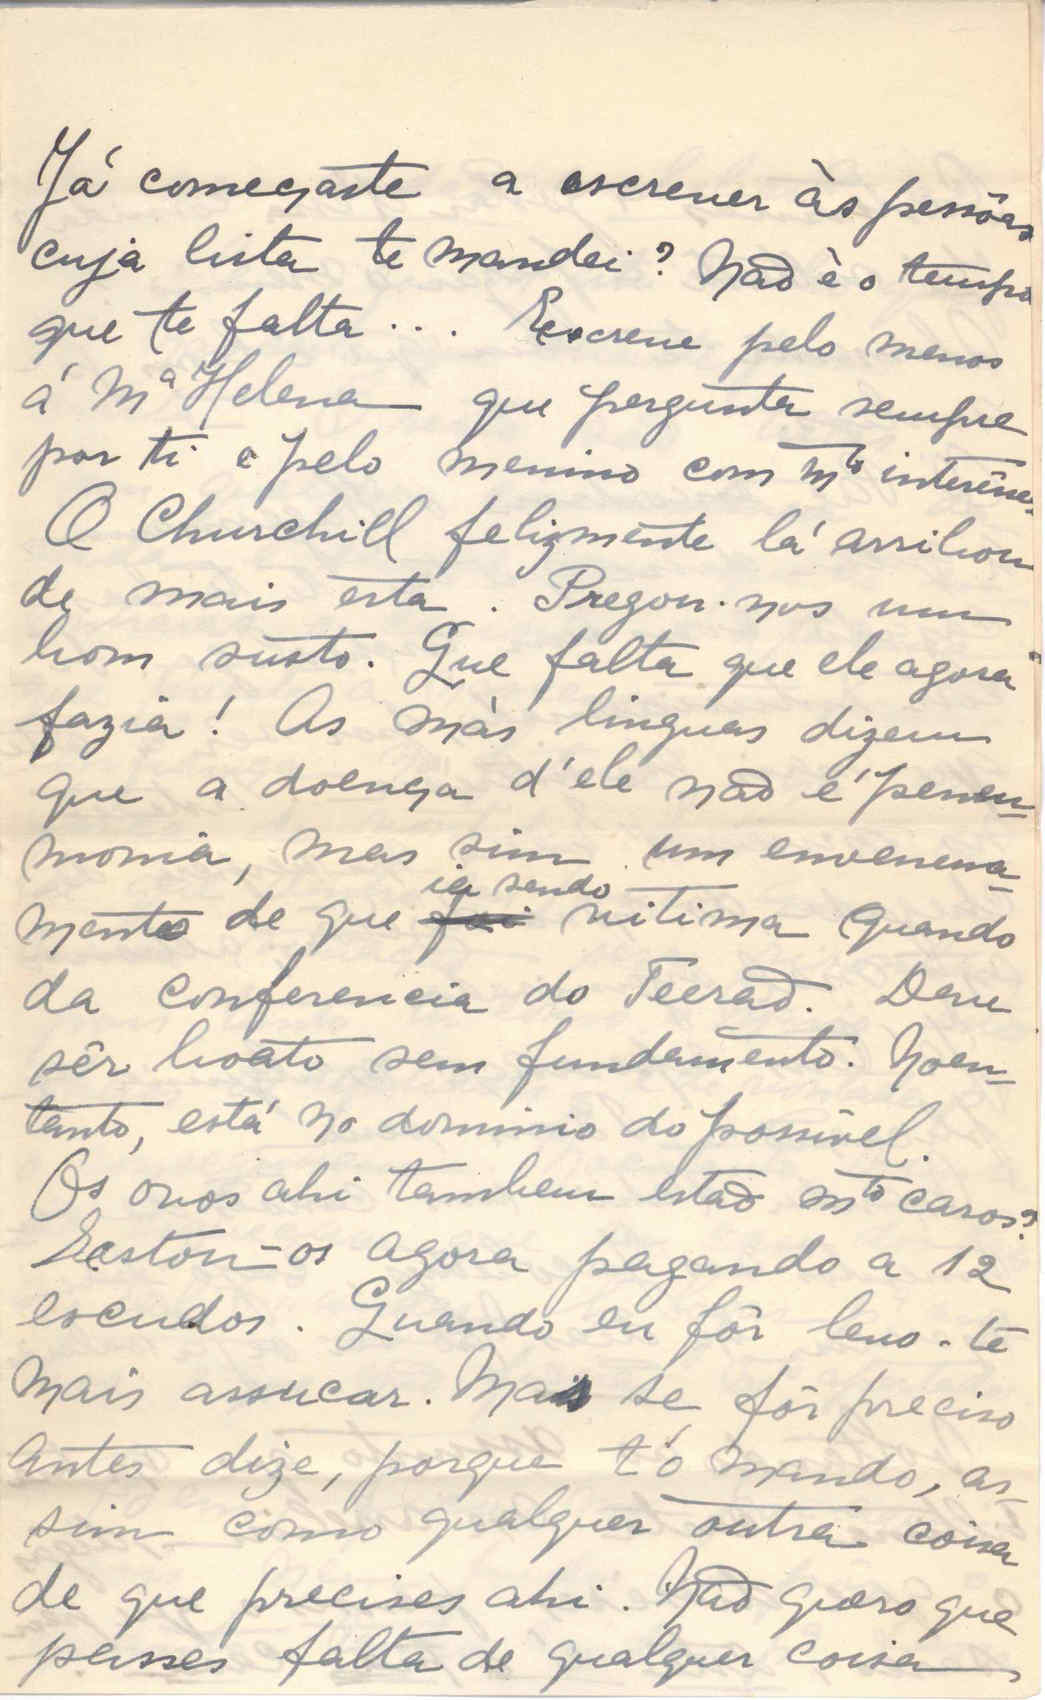 Já começaste a escrever às pessôas
cuja lista te mandei? Não è o tempo
que te falta... Escreve pelo menos
á Mª Helena que pergunta sempre
por ti e pelo menino com mto interêsse.
O Churchill felizmente lá arribou
de mais esta. Pregou-nos um
bom susto. Que falta que ele agora
fazia! As màs linguas dizem
que a doença d'ele não é pneu-
monia, mas sim um envenena-
mento de que foi ia sendo vitima quando
da conferencia do Teerão. Deve
sêr boato sem fundamento. Noen-
tanto, está no dominio do possivel.
Os ovos ahi tambem estão mto caros?
Eston-os agora pagando a 12
escudos. Quando eu fôr levo-te
mais assucar. Mas se fôr preciso
antes dize, porque t'ó mando, as-
sim como qualquer outra coisa
de que precises ahi. Não quero que
passes falta de qualquer coisa,